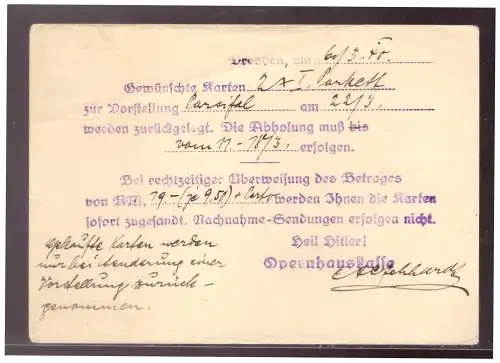 Dresden, am 6./3. 40.
Gewünschte Karten 2 x I. Parkett
zur Vorstellung Parsifal am 22/3.
werden zurückgelegt. Die Abholung muß bis
vom 11. - 18/3. erfolgen.
Bei rechtzeitiger Überweisung des Betrages
von RM. 19.- (je 9.50) + Porto werden Ihnen die Karten
sofort zugesandt. Nachnahme-Sendungen erfolgen nicht.
Heil Hitler!
Opernhauskasse
Gekaufte Karten werden
nur bei Änderung einer
Vorstellung zurück-
genommen.